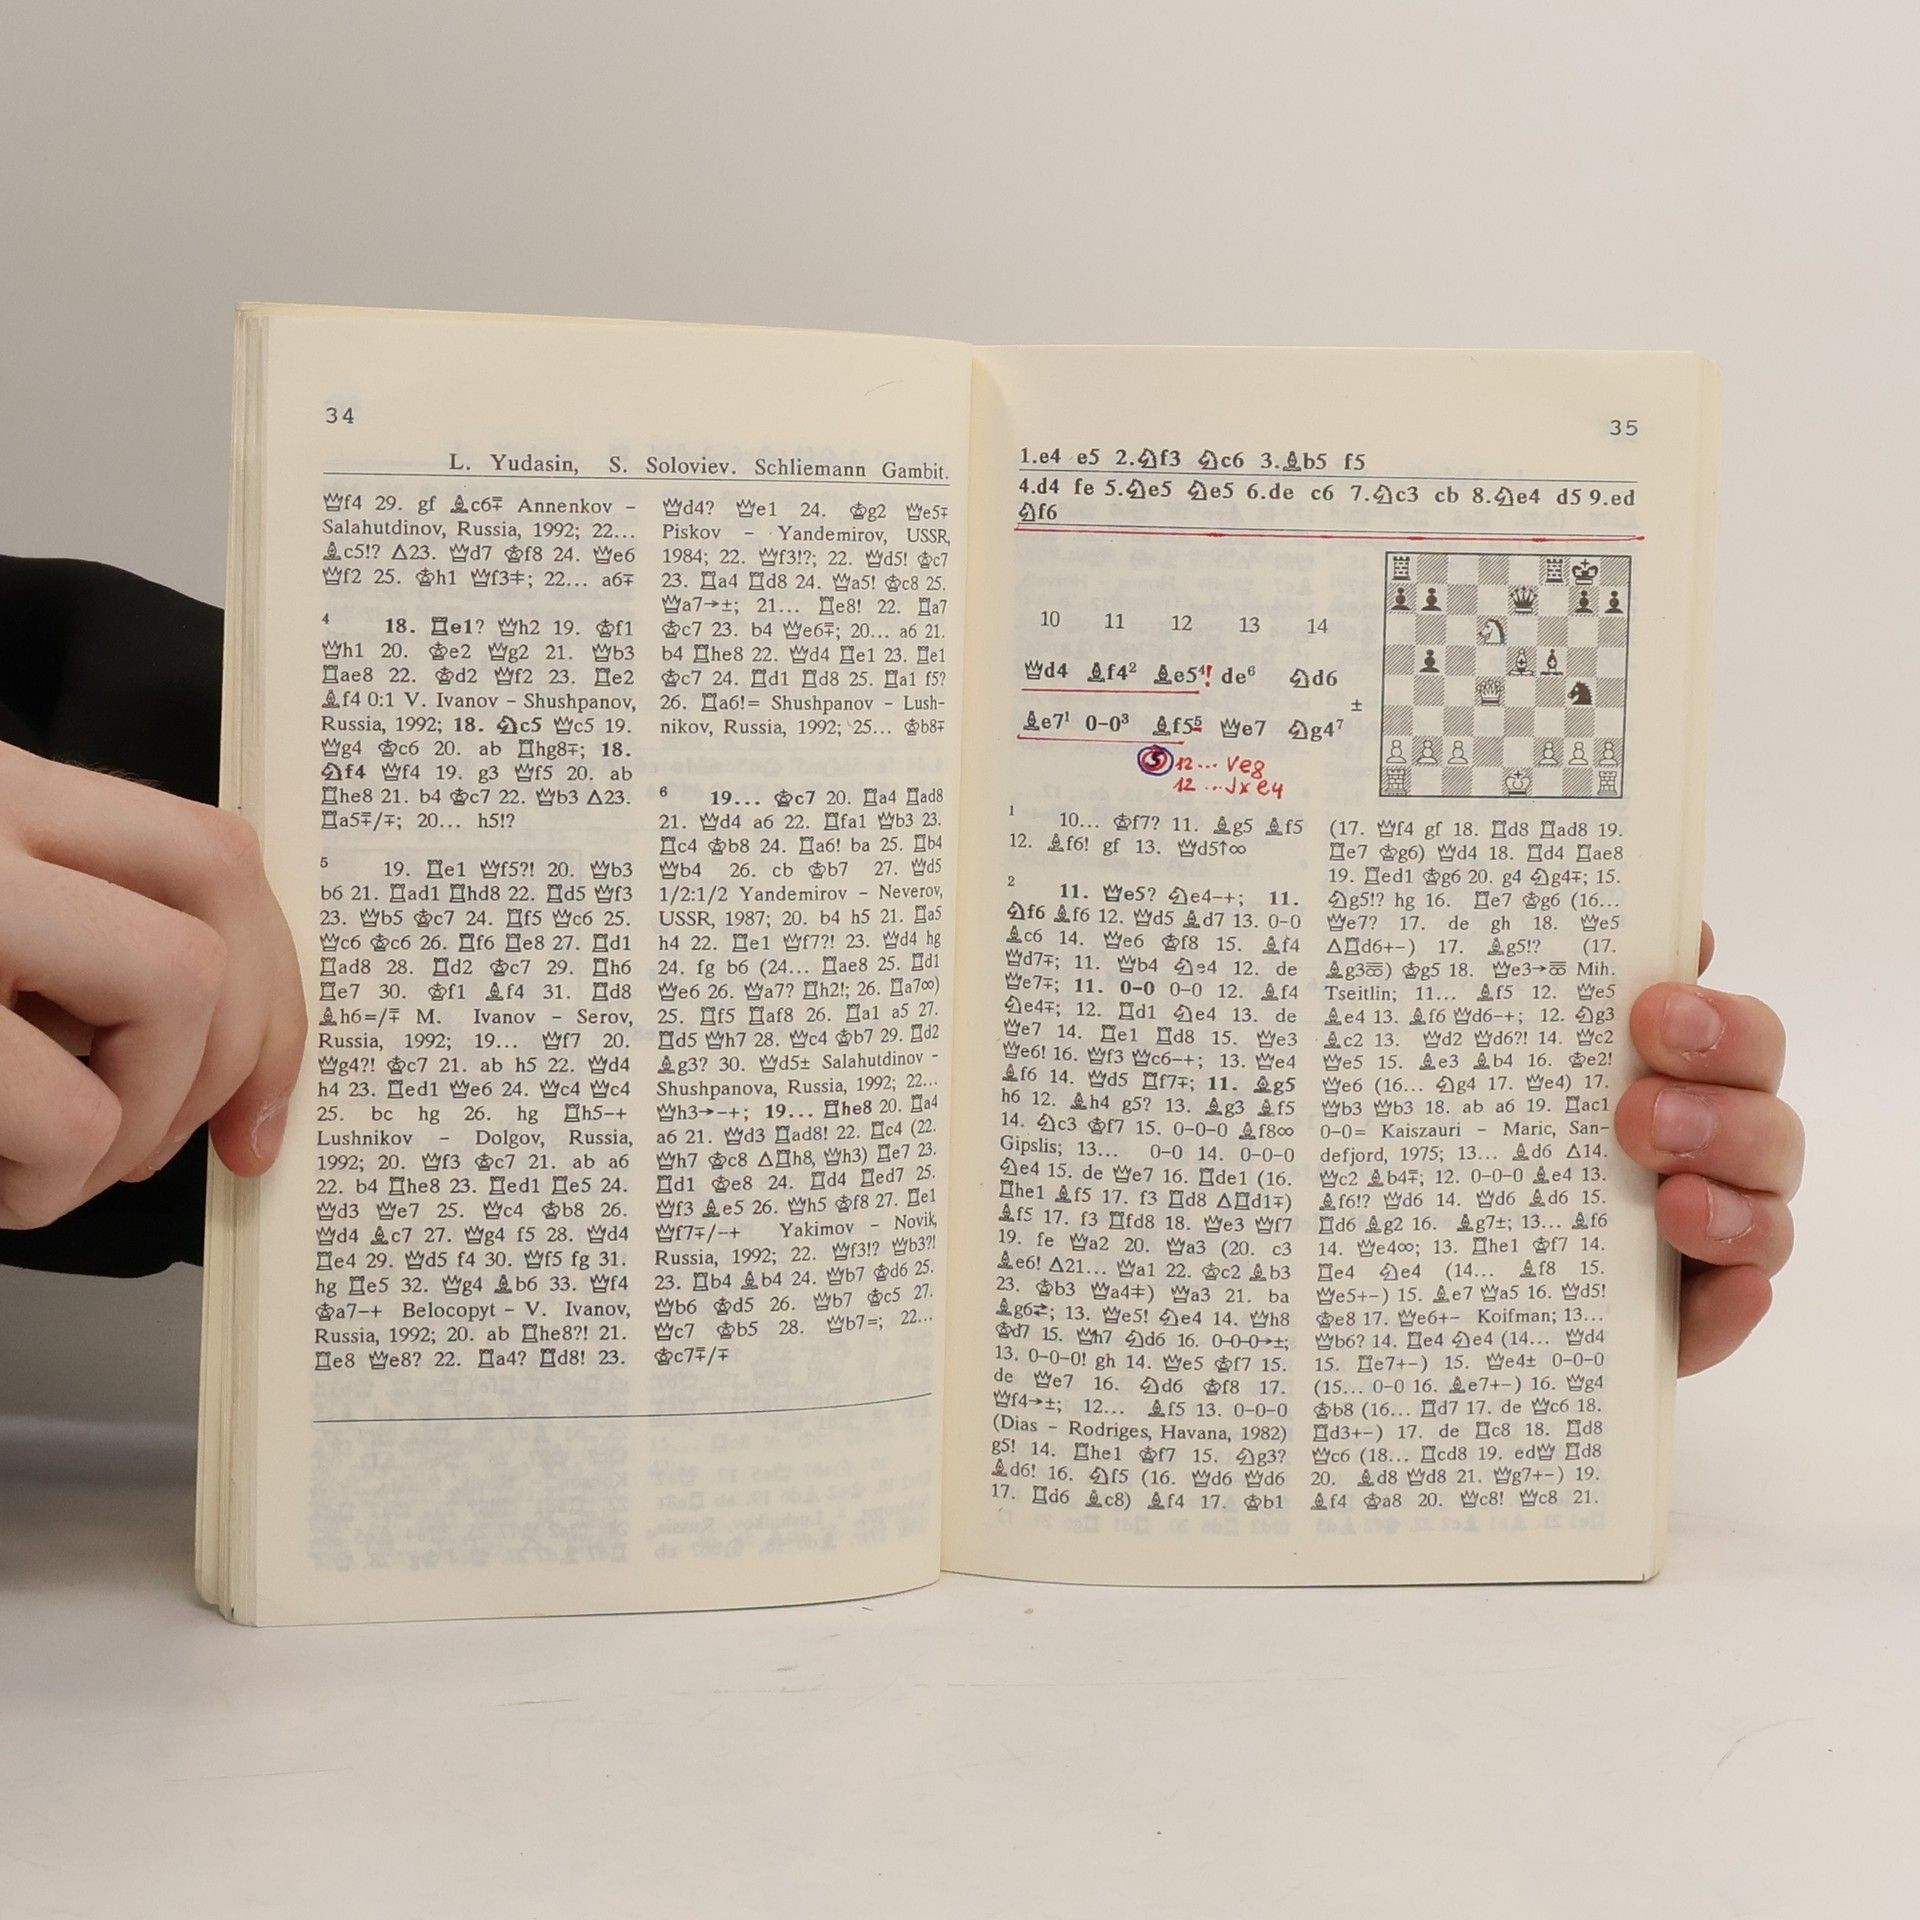 34
L. Yudasin, S. Soloviev. Schliemann Gambit.
♕f4 29. gf ♗c6∓ Annenkov –
Salahutdinov, Russia, 1992; 22...
♗c5!? Δ23. ♕d7 ♔f8 24. ♕e6
♕f2 25. ♔h1 ♕f3∓; 22... a6∓
4 18. ♖e1? ♕h2 19. ♔f1
♕h1 20. ♔e2 ♕g2 21. ♕b3
♖ae8 22. ♔d2 ♕f2 23. ♖e2
♗f4 0:1 V. Ivanov – Shushpanov,
Russia, 1992; 18. ♘c5 ♕c5 19.
♕g4 ♔c6 20. ab ♖hg8∓; 18.
♘f4 ♕f4 19. g3 ♕f5 20. ab
♖he8 21. b4 ♔c7 22. ♕b3 Δ23.
♖a5⩱/∓; 20... h5!?
5 19. ♖e1 ♕f5?! 20. ♕b3
b6 21. ♖ad1 ♖hd8 22. ♖d5 ♕f3
23. ♕b5 ♔c7 24. ♖f5 ♕c6 25.
♕c6 ♔c6 26. ♖f6 ♖e8 27. ♖d1
♖ad8 28. ♖d2 ♔c7 29. ♖h6
♖e7 30. ♔f1 ♗f4 31. ♖d8
♗h6=/⩱ M. Ivanov – Serov,
Russia, 1992; 19... ♕f7 20.
♕g4?! ♔c7 21. ab h5 22. ♕d4
h4 23. ♖ed1 ♕e6 24. ♕c4 ♕c4
25. bc hg 26. hg ♖h5–+
Lushnikov – Dolgov, Russia,
1992; 20. ♕f3 ♔c7 21. ab a6
22. b4 ♖he8 23. ♖ed1 ♖e5 24.
♕d3 ♕e7 25. ♕c4 ♔b8 26.
♕d4 ♗c7 27. ♕g4 f5 28. ♕d4
♖e4 29. ♕d5 f4 30. ♕f5 fg 31.
hg ♖e5 32. ♕g4 ♗b6 33. ♕f4
♔a7–+ Belocopyt – V. Ivanov,
Russia, 1992; 20. ab ♖he8?! 21.
♖e8 ♕e8? 22. ♖a4? ♖d8! 23.
♕d4? ♕e1 24. ♔g2 ♕e5∓
Piskov – Yandemirov, USSR,
1984; 22. ♕f3!?; 22. ♕d5! ♔c7
23. ♖a4 ♖d8 24. ♕a5! ♔c8 25.
♕a7→±; 21... ♖e8! 22. ♖a7
♔c7 23. b4 ♕e6∓; 20... a6 21.
b4 ♖he8 22. ♕d4 ♖e1 23. ♖e1
♔c7 24. ♖d1 ♖d8 25. ♖a1 f5?
26. ♖a6!= Shushpanov – Lush-
nikov, Russia, 1992; 25... ♔b8∓
6 19... ♔c7 20. ♖a4 ♖ad8
21. ♕d4 a6 22. ♖fa1 ♕b3 23.
♖c4 ♔b8 24. ♖a6! ba 25. ♖b4
♕b4 26. cb ♔b7 27. ♕d5
1/2:1/2 Yandemirov – Neverov,
USSR, 1987; 20. b4 h5 21. ♖a5
h4 22. ♖e1 ♕f7?! 23. ♕d4 hg
24. fg b6 (24... ♖ae8 25. ♖d1
♕e6 26. ♕a7? ♖h2!; 26. ♖a7∞)
25. ♖f5 ♖af8 26. ♖a1 a5 27.
♖d5 ♕h7 28. ♕c4 ♔b7 29. ♖d2
♗g3? 30. ♕d5± Salahutdinov –
Shushpanova, Russia, 1992; 22...
♕h3→–+; 19... ♖he8 20. ♖a4
a6 21. ♕d3 ♖ad8! 22. ♖c4 (22.
♕h7 ♔c8 Δ♖h8, ♕h3) ♖e7 23.
♖d1 ♔e8 24. ♖d4 ♖ed7 25.
♕f3 ♗e5 26. ♕h5 ♔f8 27. ♖e1
♕f7∓/–+ Yakimov – Novik,
Russia, 1992; 22. ♕f3!? ♕b3?!
23. ♖b4 ♗b4 24. ♕b7 ♔d6 25.
♕b6 ♔d5 26. ♕b7 ♔c5 27.
♕c7 ♔b5 28. ♕b7=; 22...
♔c7⩱/∓
35
1.e4 e5 2.♘f3 ♘c6 3.♗b5 f5
4.d4 fe 5.♘e5 ♘e5 6.de c6 7.♘c3 cb 8.♘e4 d5 9.ed
♘f6
10 11 12 13 14
♕d4 ♗f4² ♗e5⁴! de⁶ ♘d6
±
♗e7¹ 0–0³ ♗f5⁵ ♕e7 ♘g4⁷
5 12... Ve8
12 ...Jxe4
1 10... ♔f7? 11. ♗g5 ♗f5
12. ♗f6! gf 13. ♕d5↑∞
2 11. ♕e5? ♘e4–+; 11.
♘f6 ♗f6 12. ♕d5 ♗d7 13. 0–0
♗c6 14. ♕e6 ♔f8 15. ♗f4
♕d7∓; 11. ♕b4 ♘e4 12. de
♕e7∓; 11. 0–0 0–0 12. ♗f4
♘e4∓; 12. ♖d1 ♘e4 13. de
♕e7 14. ♖e1 ♖d8 15. ♕e3
♕e6! 16. ♕f3 ♕c6–+; 13. ♕e4
♗f6 14. ♕d5 ♖f7∓; 11. ♗g5
h6 12. ♗h4 g5? 13. ♗g3 ♗f5
14. ♘c3 ♔f7 15. 0–0–0 ♗f8∞
Gipslis; 13... 0–0 14. 0–0–0
♘e4 15. de ♕e7 16. ♖de1 (16.
♖he1 ♗f5 17. f3 ♖d8 Δ♖d1∓)
♗f5 17. f3 ♖fd8 18. ♕e3 ♕f7
19. fe ♕a2 20. ♕a3 (20. c3
♗e6! Δ21... ♕a1 22. ♔c2 ♗b3
23. ♔b3 ♕a4∓) ♕a3 21. ba
♗g6⇄; 13. ♕e5! ♘e4 14. ♕h8
♔d7 15. ♕h7 ♘d6 16. 0–0–0→±;
13. 0–0–0! gh 14. ♕e5 ♔f7 15.
de ♕e7 16. ♘d6 ♔f8 17.
♕f4→±; 12... ♗f5 13. 0–0–0
(Dias – Rodriges, Havana, 1982)
g5! 14. ♖he1 ♔f7 15. ♘g3?
♗d6! 16. ♘f5 (16. ♕d6 ♕d6
17. ♖d6 ♗c8) ♗f4 17. ♔b1
(17. ♕f4 gf 18. ♖d8 ♖ad8 19.
♖e7 ♔g6) ♕d4 18. ♖d4 ♖ae8
19. ♖ed1 ♔g6 20. g4 ♘g4∓; 15.
♘g5!? hg 16. ♖e7 ♔g6 (16...
♕e7? 17. de gh 18. ♕e5
Δ♖d6+–) 17. ♗g5!? (17.
♗g3⯹) ♔g5 18. ♕e3→⯹ Mih.
Tseitlin; 11... ♗f5 12. ♕e5
♗e4 13. ♗f6 ♕d6–+; 12. ♘g3
♗c2 13. ♕d2 ♕d6?! 14. ♕c2
♕e5 15. ♗e3 ♗b4 16. ♔e2!
♕e6 (16... ♘g4 17. ♕e4) 17.
♕b3 ♕b3 18. ab a6 19. ♖ac1
0–0= Kaiszauri – Maric, San-
defjord, 1975; 13... ♗d6 Δ14.
♕c2 ♗b4∓; 12. 0–0–0 ♗e4 13.
♗f6!? ♕d6 14. ♕d6 ♗d6 15.
♖d6 ♗g2 16. ♗g7±; 13... ♗f6
14. ♕e4∞; 13. ♖he1 ♔f7 14.
♖e4 ♘e4 (14... ♗f8 15.
♕e5+–) 15. ♗e7 ♕a5 16. ♕d5!
♔e8 17. ♕e6+– Koifman; 13...
♕b6? 14. ♖e4 ♘e4 (14... ♕d4
15. ♖e7+–) 15. ♕e4± 0–0–0
(15... 0–0 16. ♗e7+–) 16. ♕g4
♔b8 (16... ♖d7 17. de ♕c6 18.
♖d3+–) 17. de ♖c8 18. ♖d8
♕c6 (18... ♖cd8 19. ed♕ ♖d8
20. ♗d8 ♕d8 21. ♕g7+–) 19.
♗f4 ♔a8 20. ♕c8! ♕c8 21.